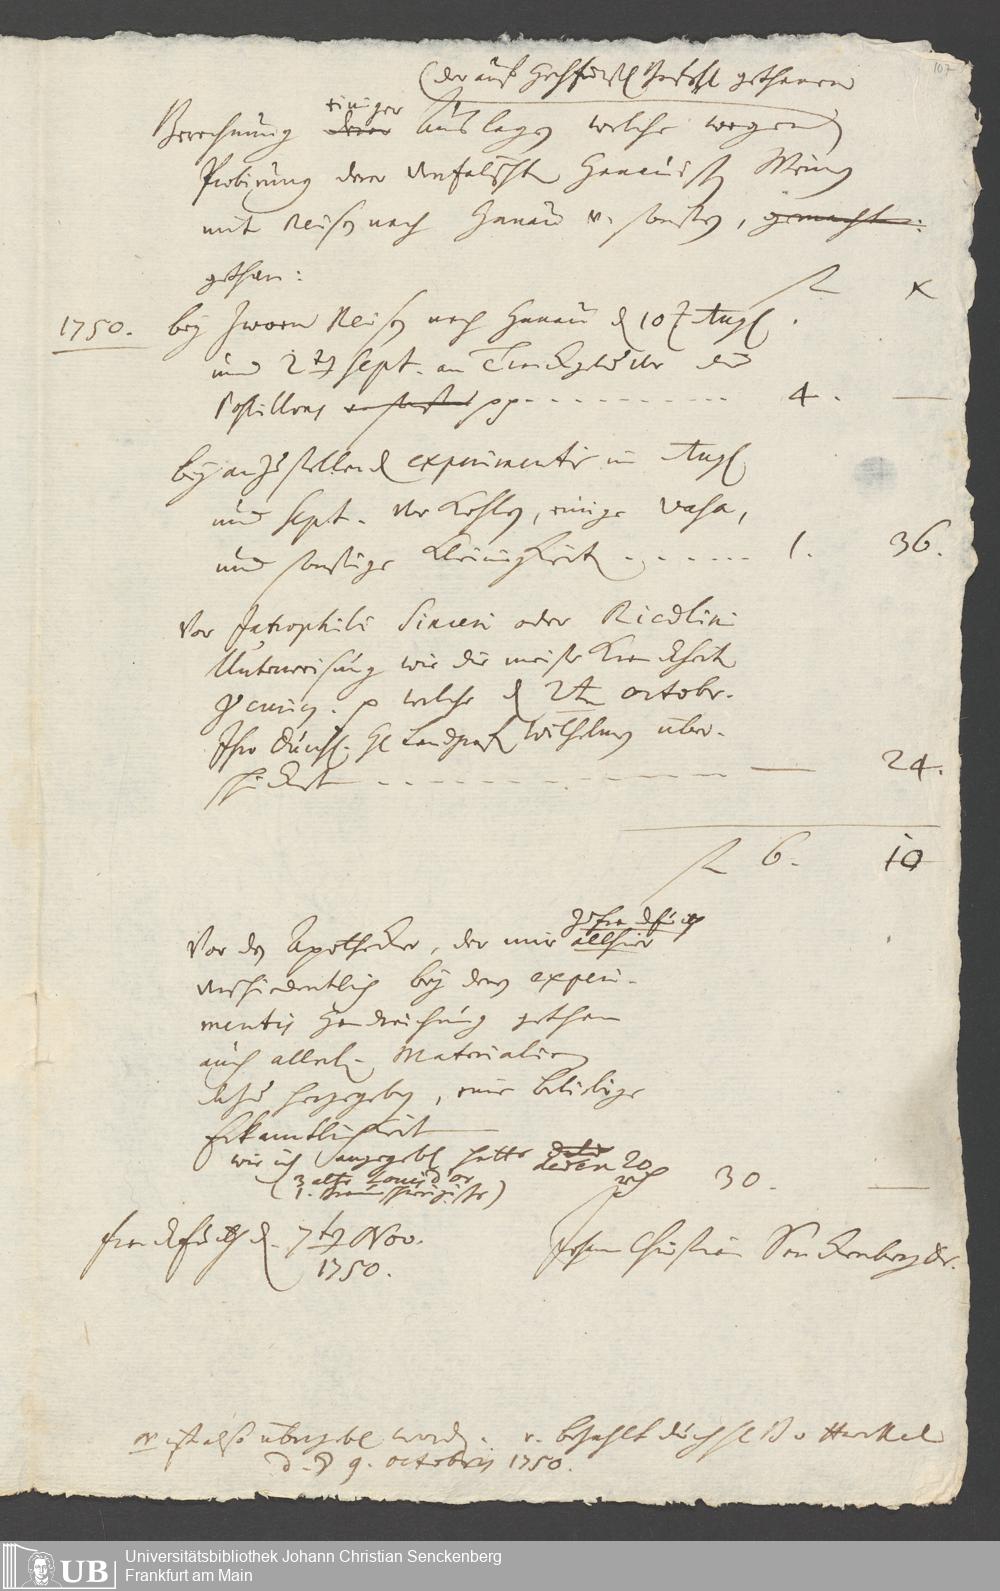 107
(der auf Hochfürstl Befehl gethanen
einiger
Berechnung derer Auslagen welche wegen
Probirung derer verfälschten Hanauisch Weinen
mit Reisen nach Hanau u. sonsten, gemacht:
gethan:
fl x
1750. bey zween Reisen nach Hanau d 10 Aug
und 27 Sept. an Trinckgelder die
Postillons pp 4. —
bey anzustellend experimentis in Aug
und Sept. vor Kohlen, einige Vasa,
und sonstige Kleinigkeit 1. 36.
Vor Jatrophili Sinceri oder Riedlini
Unterweisung wie die meiste Kranckheit
zu curiren p welche d 2t octobr.
Ihro Durchl. H Landgraf Wilhelmen über-
schickt — 24.
fl 6. 10
zu franckfurth
Vor den Apothecker, der mir allhier
verschiedentlich bey denen experi-
mentis Handreichung gethan
auch allerl. Materialien
dazu hergegeben, eine beliebige
Erkantlichkeit
wie ich angegeb hatte deren 20
(3 alte Louisd'or 30. —
1. )
franckfurth d. 7t Nov.
1750.
Johann Christian Senckenberg Dr.
ist also übergeb word. u. bezahlt durch H
d. 9. octobris 1750.
Universitätsbibliothek Johann Christian Senckenberg
Frankfurt am Main
UB